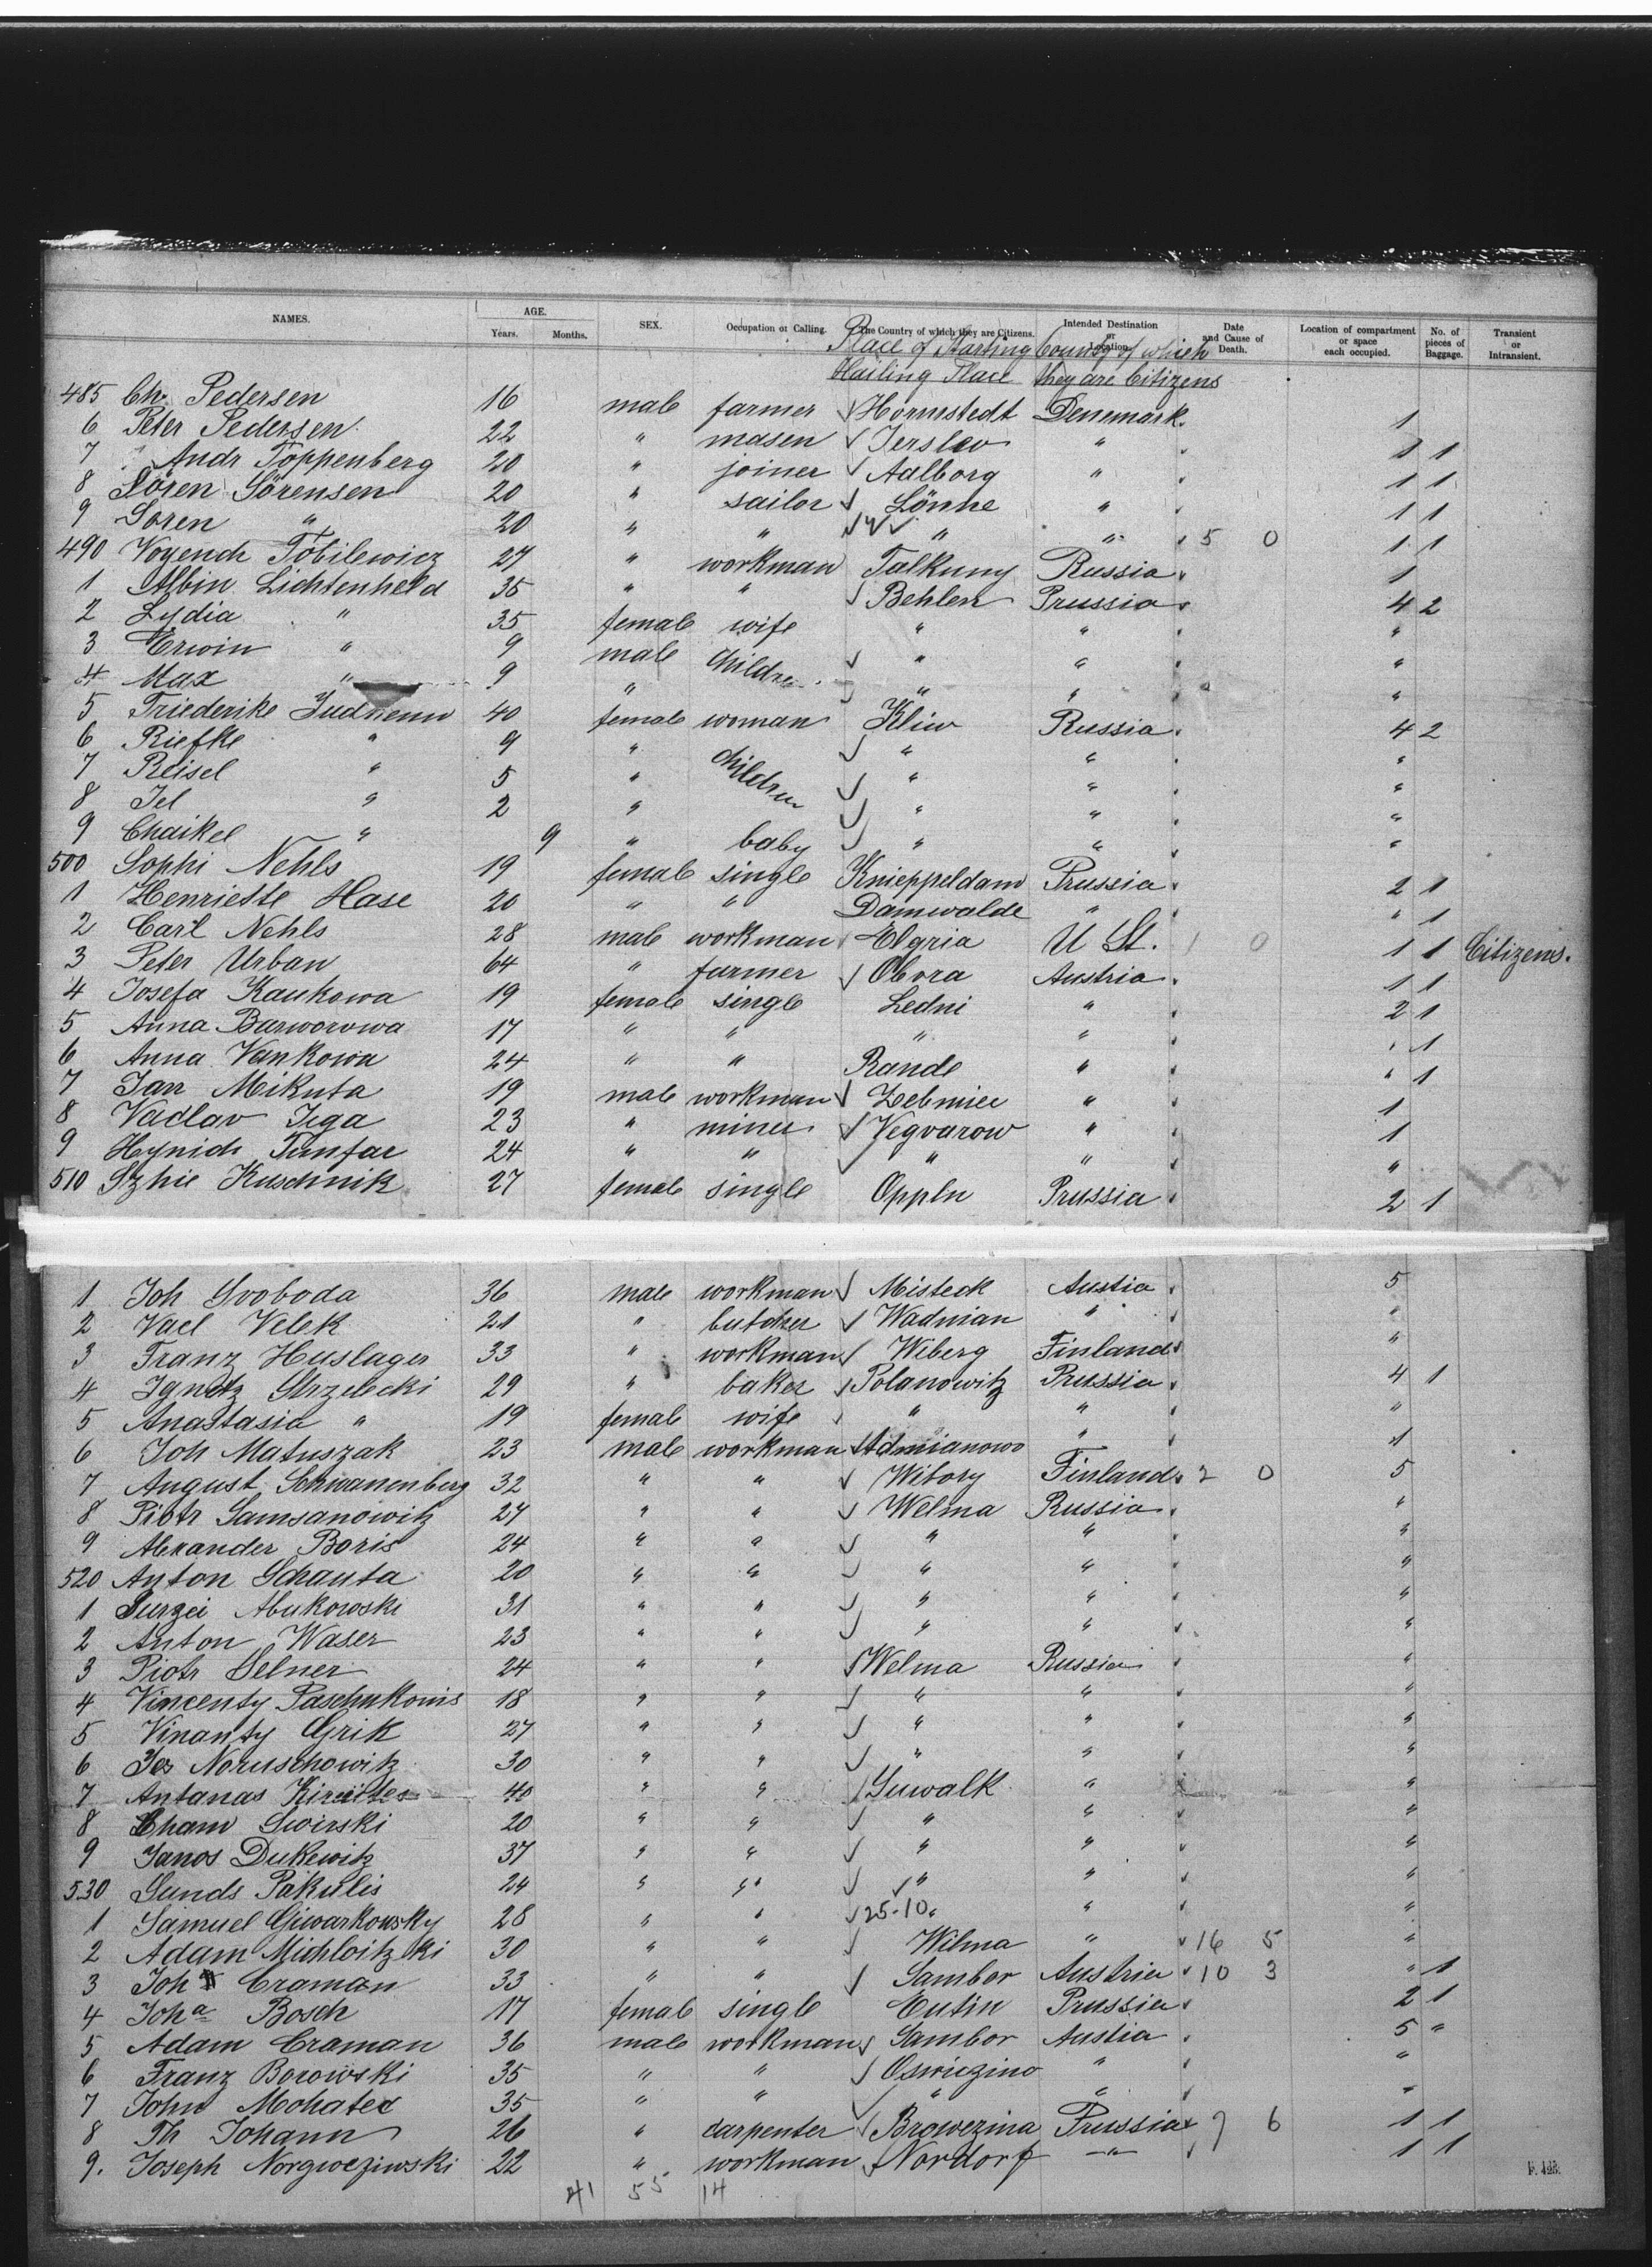 NAMES. AGE. SEX. Occupation or Calling. The Country of which they are Citizens. Intended Destination or Location. Date and Cause of Death. Location of compartment or space each occupied. No. of pieces of Baggage. Transient or Intransient.
Years. Months.
Place of Starting Country of which
Hailing Place they are Citizens
485 Chr. Pedersen 16 male farmer Hornstedt Denemark. 1
6 Peter Pedersen 22 " masen Jerslev " 1 1
7 Andr Toppenberg 20 " joiner Aalborg " 1 1
8 Sören Sörensen 20 " sailor Lönne " 1 1
9 Soren " 20 " " " " 5 0 1 1
490 Voyench Tobilewicz 27 " workman Talkuny Russia 1
1 Albin Lichtenheld 35 " " Behlen Prussia 4 2
2 Lydia " 35 female wife " " "
3 Erwin " 9 male children " " "
4 Max " 9 " " " "
5 Friederike Judnenw 40 female woman Kliw Russia 4 2
6 Riefke " 9 " children " " "
7 Reisel " 5 " " " "
8 Jel " 2 " " " "
9 Chaikel " 9 " baby " " "
500 Sophi Nehls 19 female single Knieppeldam Prussia 2 1
1 Henriette Hase 20 " " Damwalde " " 1
2 Carl Nehls 28 male workman Elgria U St. 1 0 1 1 Citizens.
3 Peter Urban 64 " farmer Obora Austria 1 1
4 Josefa Kaukowa 19 female single Ledni " 2 1
5 Anna Barworowa 17 " " " " " 1
6 Anna Vankowa 24 " " Rande " " 1
7 Jan Mikuta 19 male workman Zebmiee " 1
8 Vaclav Jiga 23 " miner Vegvarow " 1
9 Hynich Tumfar 24 " " " " "
510 Szhie Kuschnik 27 female single Oppln Prussia 2 1
1 Joh Svoboda 36 male workman Misteck Austia 5
2 Vacl Velek 21 " butcher Wadnian " "
3 Franz Huslager 33 " workman Wiberg Finland "
4 Ignatz Strzelecki 29 " baker Polanowitz Prussia 4 1
5 Anastasia " 19 female wife " " "
6 Joh Matuszak 23 male workman Admianowo " 1
7 August Schwanenberg 32 " " Witory Finland 2 0 5
8 Piotr Samsanowitz 27 " " Welma Russia "
9 Alexander Boris 24 " " " " "
520 Anton Schauta 20 " " " " "
1 Surzei Abukowski 31 " " " " "
2 Anton Waser 23 " " " " "
3 Piotr Selner 24 " " Welma Russia "
4 Vincenty Paschukonis 18 " " " " "
5 Vinanty Grik 27 " " " " "
6 Jos Noruschowitz 30 " " " " "
7 Antanas Kiraites 40 " " Suwalk " "
8 Cham Swirski 20 " " " " "
9 Janos Dukewitz 37 " " " " "
530 Sunds Pakulis 24 " " " " "
1 Samuel Giwarkowsky 28 " " 25-10 " "
2 Adam Michloitzki 30 " " Wilma " 16 5 "
3 Joh Craman 33 " " Sambor Austria 10 3 " 1
4 Joha Bosch 17 female single Eutin Prussia 2 1
5 Adam Craman 36 male workman Sambor Austia 5 "
6 Franz Borowski 35 " " Oswiezino " "
7 John Mohatec 35 " " " " "
8 Th Johann 26 " carpenter Browezina Prussia 7 6 1 1
9. Joseph Norgweziwski 22 " workman Nordorf " 1 1
41 55 14